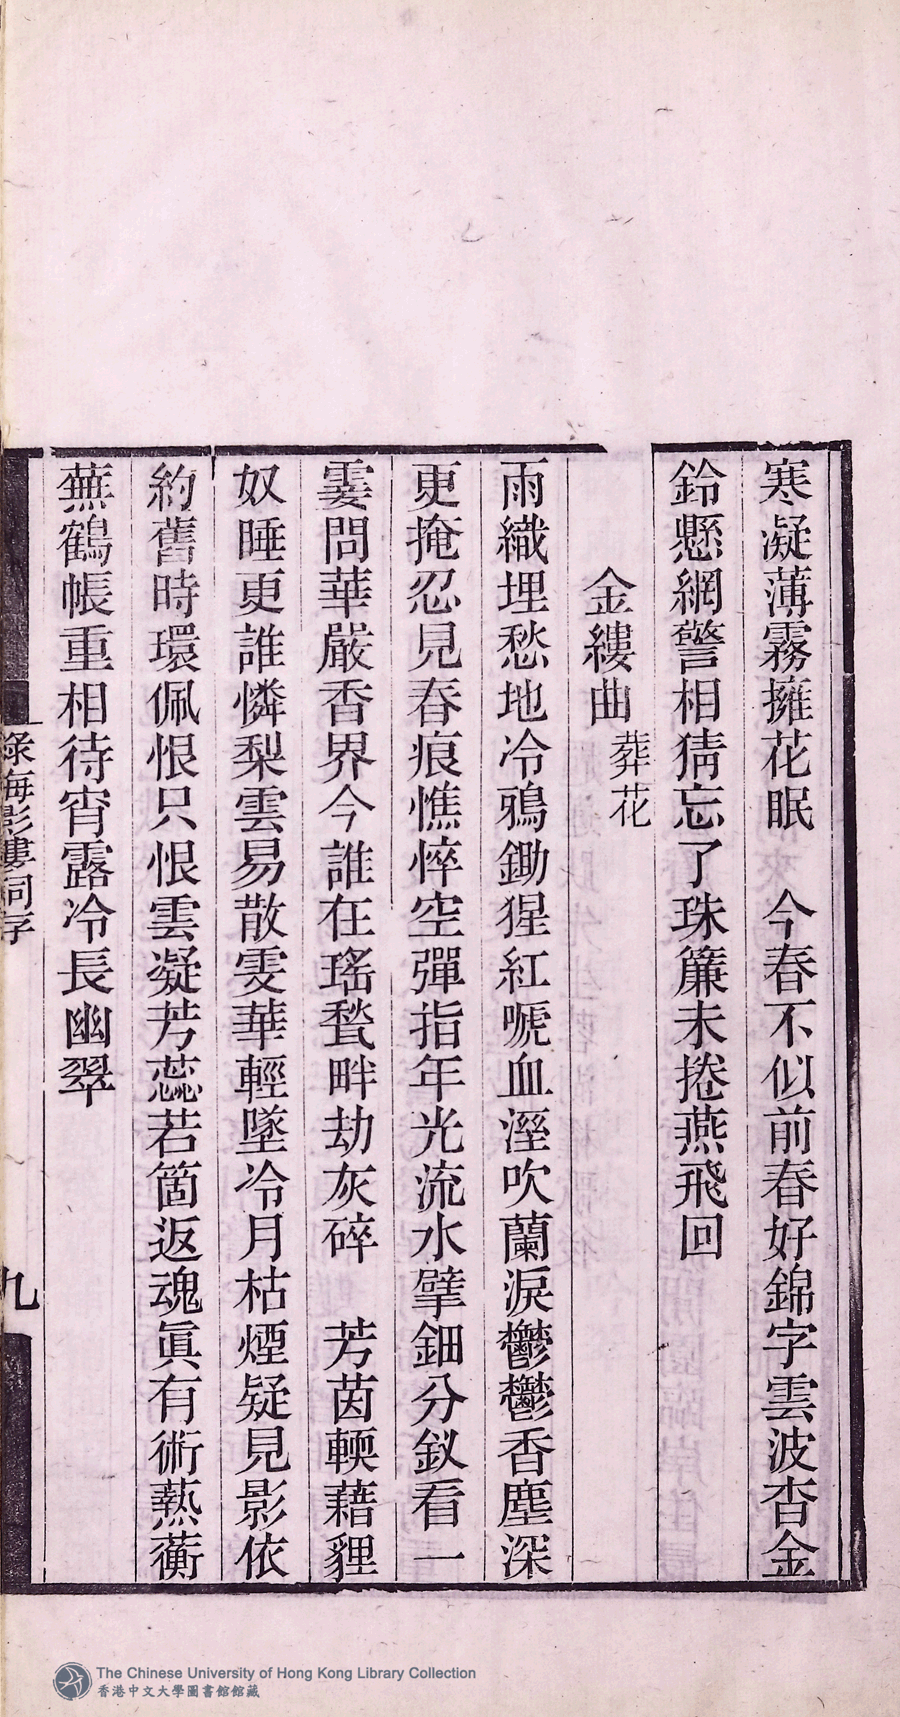 寒凝薄霧擁花眠　今春不似前春好錦字雲波杳金
鈴懸網警相猜忘了珠簾未捲燕飛回
金縷曲 葬花
雨織埋愁地冷鴉鋤猩紅嗁血溼吹蘭淚鬱鬱香塵深
更掩忍見春痕憔悴空彈指年光流水擘鈿分釵看一
霎問華嚴香界今誰在瑤甃畔劫灰碎　芳茵輭藉貍
奴睡更誰憐梨雲易散雯華輕墜冷月枯煙疑見影依
約舊時環佩恨只恨雲凝芳蕊若箇返魂眞有術爇蘅
蕪鶴帳重相待宵露冷長幽翠
淥海影㢠詞存
九
The Chinese University of Hong Kong Library Collection
香港中文大學圖書館館藏